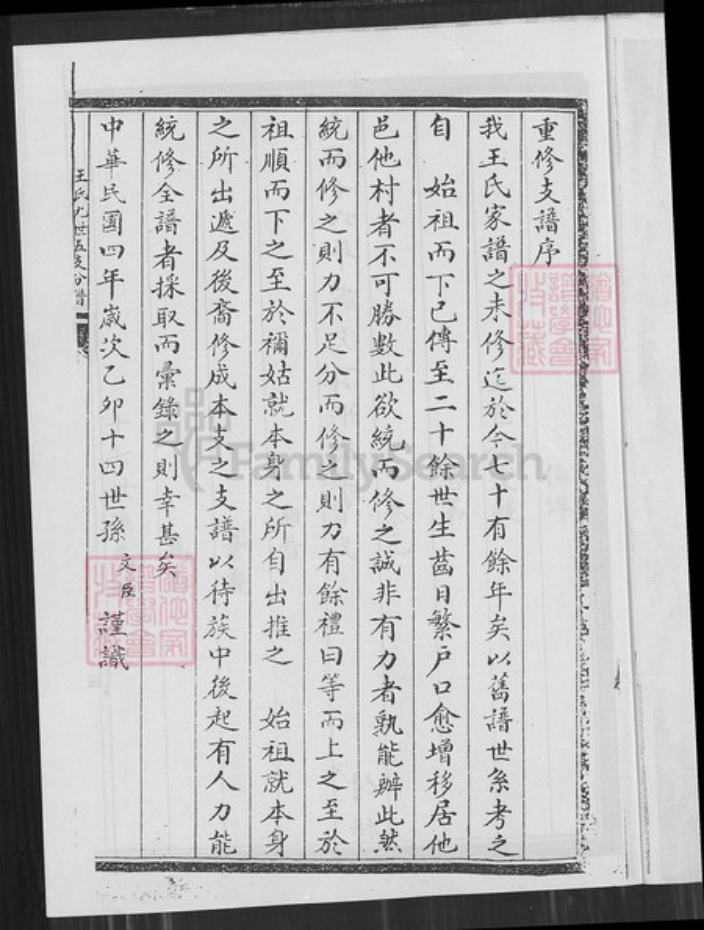 重修支譜序
我王氏家譜之未修迄於今七十有餘年矣以舊譜世系考之
自　始祖而下已傳至二十餘世生齒日繁戶口愈增移居他
邑他村者不可勝數此欲統而修之誠非有力者孰能辦此然
統而修之則力不足分而修之則力有餘禮曰等而上之至於
祖順而下之至於禰姑就本身之所自出推之　始祖就本身
之所出遞及後裔修成本支之支譜以待族中後起有人力能
統修全譜者採取而彙錄之則幸甚矣
中華民國四年歲次乙卯十四世孫文臣謹識
王氏九世五支分譜
譜學會
收藏
譜學會
收藏
FamilySearch